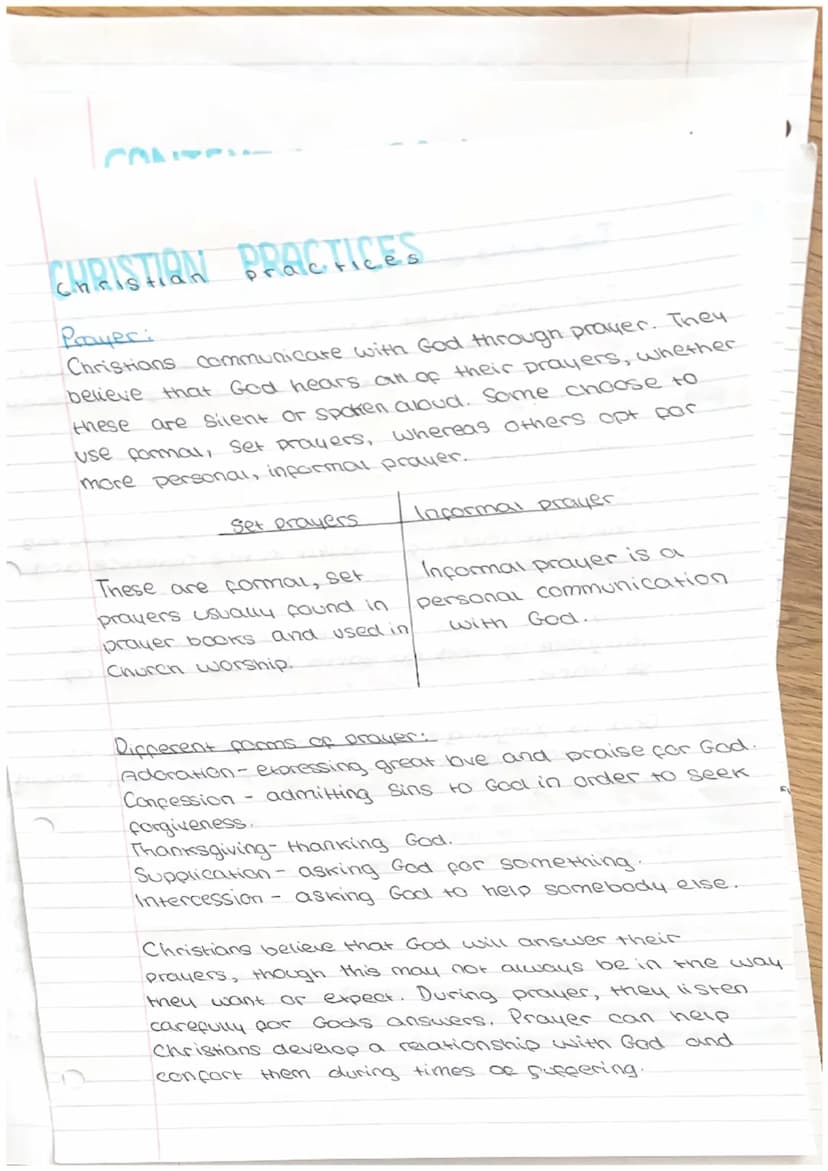 CHRISTIAN PRACTICES
Christian practices
Prayer:
Christians communicate with God through prayer. They
believe that God hears all of their prayers, whether
these are silent or spoken aloud. Some choose to
use formal, set prayers, whereas others opt for
more personal, informal prayer.
Set prayers
Informal prayer
These are formal, set
prayers usually found in
prayer books and used in
Church worship.
Informal prayer is a
personal communication
with God.
Different forms of prayer:
Adoration - expressing great love and praise for God.
Confession - admitting sins to God in order to seek
forgiveness.
Thanksgiving - thanking God.
Supplication - asking God for something.
Intercession - asking God to help somebody else.
Christians believe that God will answer their
prayers, though this may not always be in the way
they want or expect. During prayer, they listen
carefully for Gods answers. Prayer can help
Christians develop a relationship with God and
confort them during times of suffering.